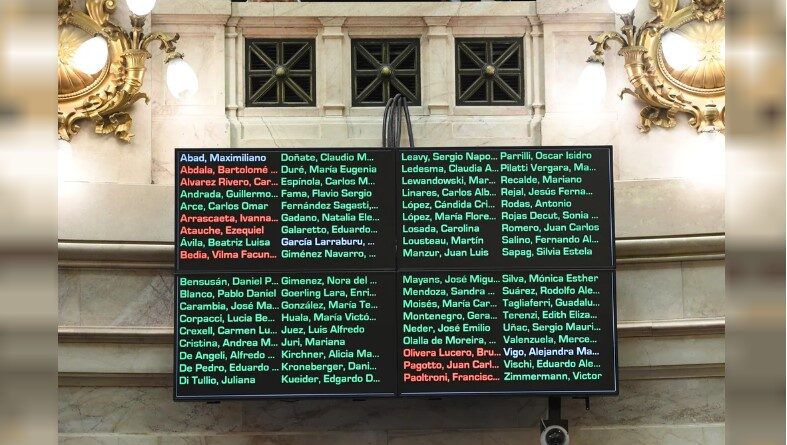 Abad, Maximiliano
Abdala, Bartolomé ...
Alvarez Rivero, Car...
Andrada, Guillermo...
Arce, Carlos Omar
Arrascaeta, Ivanna...
Atauche, Ezequiel
Ávila, Beatriz Luisa
Bedia, Vilma Facun...
Doñate, Claudio M...
Duré, María Eugenia
Espínola, Carlos M...
Fama, Flavio Sergio
Fernández Sagasti,...
Gadano, Natalia Ele...
Galaretto, Eduardo...
García Larraburu, ...
Giménez Navarro, ...
Leavy, Sergio Napo...
Ledesma, Claudia A...
Lewandowski, Mar...
Linares, Carlos Alb...
López, Cándida Cri...
López, María Flore...
Losada, Carolina
Lousteau, Martín
Manzur, Juan Luis
Parrilli, Oscar Isidro
Pilatti Vergara, Ma...
Recalde, Mariano
Rejal, Jesús Ferna...
Rodas, Antonio
Rojas Decut, Sonia ...
Romero, Juan Carlos
Salino, Fernando Al...
Sapag, Silvia Estela
Bensusán, Daniel P...
Blanco, Pablo Daniel
Carambia, José Ma...
Corpacci, Lucia Be...
Crexell, Carmen Lu...
Cristina, Andrea M...
De Angeli, Alfredo ...
De Pedro, Eduardo ...
Di Tullio, Juliana
Gimenez, Nora del ...
Goerling Lara, Enri...
González, María Te...
Huala, María Victó...
Juez, Luis Alfredo
Juri, Mariana
Kirchner, Alicia Ma...
Kroneberger, Dani...
Kueider, Edgardo D...
Mayans, José Migu...
Mendoza, Sandra ...
Moisés, María Car...
Montenegro, Gera...
Neder, José Emilio
Olalla de Moreira, ...
Olivera Lucero, Bru...
Pagotto, Juan Carl...
Paoltroni, Francisc...
Silva, Mónica Esther
Suárez, Rodolfo Ale...
Tagliaferri, Guadalu...
Terenzi, Edith Eliza...
Uñac, Sergio Mauri...
Valenzuela, Merce...
Vigo, Alejandra Ma...
Vischi, Eduardo Ale...
Zimmermann, Victor